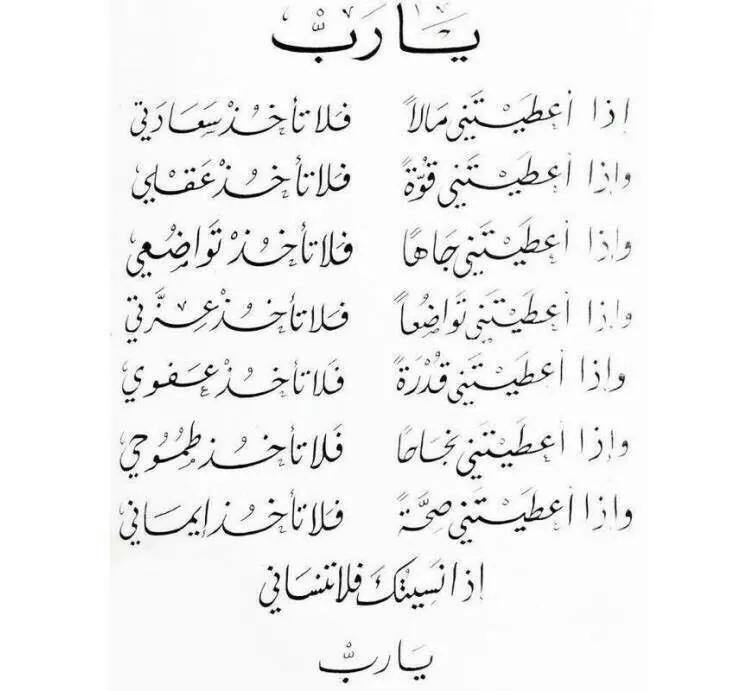 يَا رَبّ
إذا أعطَيْتَني مَالاً فَلا تأخُذْ سَعَادَتي
وإذا أعطَيْتَني قُوّةً فَلا تأخُذْ عَقْلي
وإذا أعطَيْتَني جَاهًا فَلا تأخُذْ تَوَاضُعي
وإذا أعطَيْتَني تَوَاضُعاً فَلا تأخُذْ عِزَّتي
وإذا أعطَيْتَني قُدْرَةً فَلا تأخُذْ عَفوي
وإذا أعطَيْتَني نجَاحًا فَلا تأخُذ طمُوحي
وإذا أعطَيْتَني صِحَّةً فَلا تأخُذ إيمَاني
إذا نَسِيتكَ فلا تنسَاني
يَا ربّ